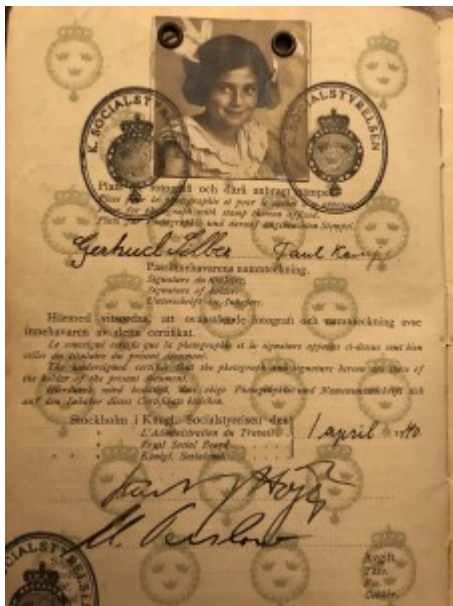 K. SOCIALSTYRELSEN
K. SOCIALSTYRELSEN
Plats för fotografi och därå anbragt stämpel.
Place pour la photographie et pour le cachet à y apposer.
for photograph with stamp thereon affixed.
Platz für Photographie und darauf angebrachten Stempel.
Gertrud Paul
Passinnehavarens namnteckning.
Signature du titulaire.
Signature of holder.
Unterschrift des Inhabers.
Härmed vitsordas, att ovanstående fotografi och namnteckning avse
innehavaren av detta certifikat.
Le soussigné certifie que la photographie et la signature apposées ci-dessus sont bien
celles du titulaire du présent document.
The undersigned certifies that the photograph and signature hereon are those of
the holder of the present document.
Hierdurch wird bestätigt, dass obige Photographie und Namensunterschrift sich
auf den Inhaber dieses Certifikats beziehen.
Stockholm i Kungl. Socialstyrelsen den 1 april 1940
L'Administration du Travail
Royal Social Board
Königl. Sozialamt
SOCIALSTYRELSEN
Avgift
Taxe
Fee
Gebühr